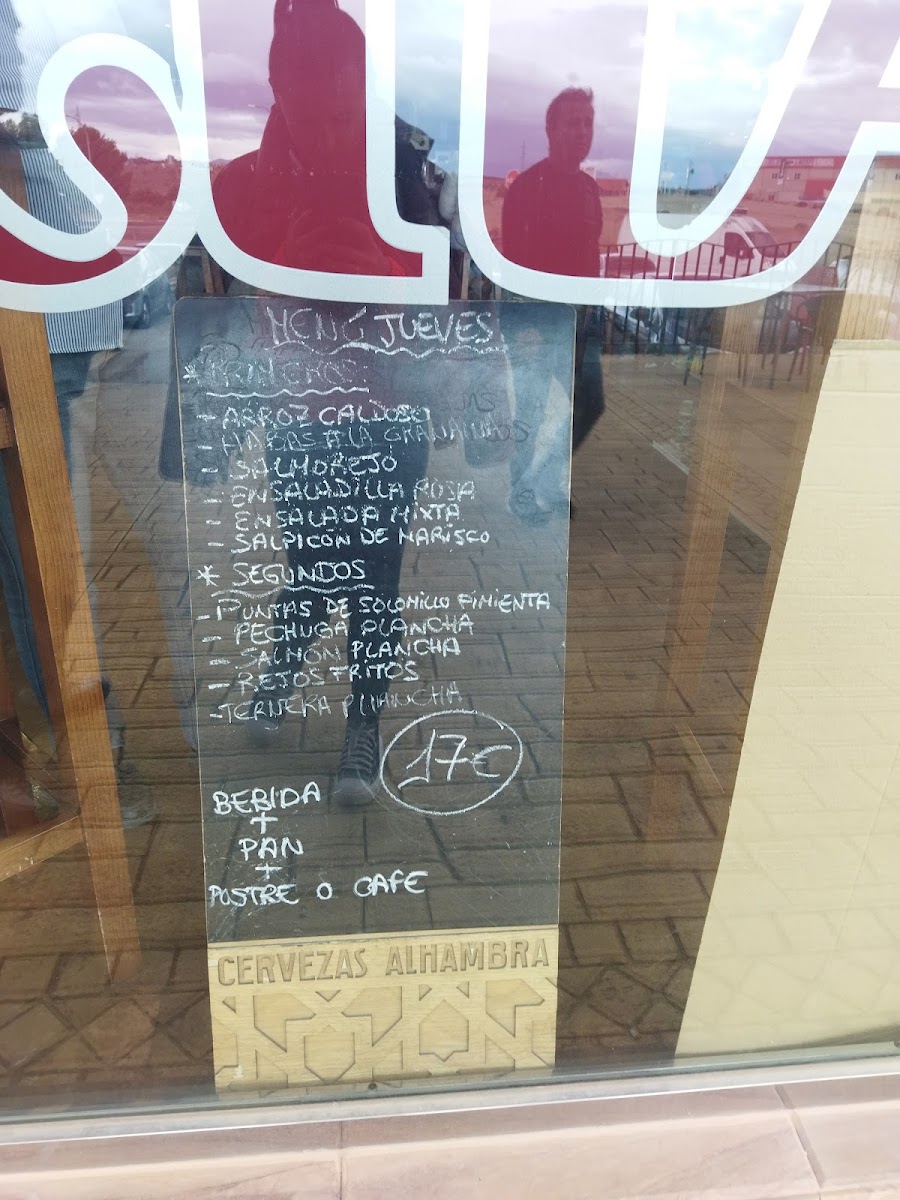 MENÚ JUEVES
* PRIMEROS:
- ARROZ CALDOSO
- HABAS A LA
- SALMOREJO
- ENSALADILLA ROJA
- ENSALADA MIXTA
- SALPICÓN DE MARISCO
* SEGUNDOS
- PUNTAS DE SOLOMILLO PIMIENTA
- PECHUGA PLANCHA
- SALMÓN PLANCHA
- REJOS FRITOS
- TERNERA PLANCHA
17€
BEBIDA
+
PAN
+
POSTRE O CAFE
CERVEZAS ALHAMBRA